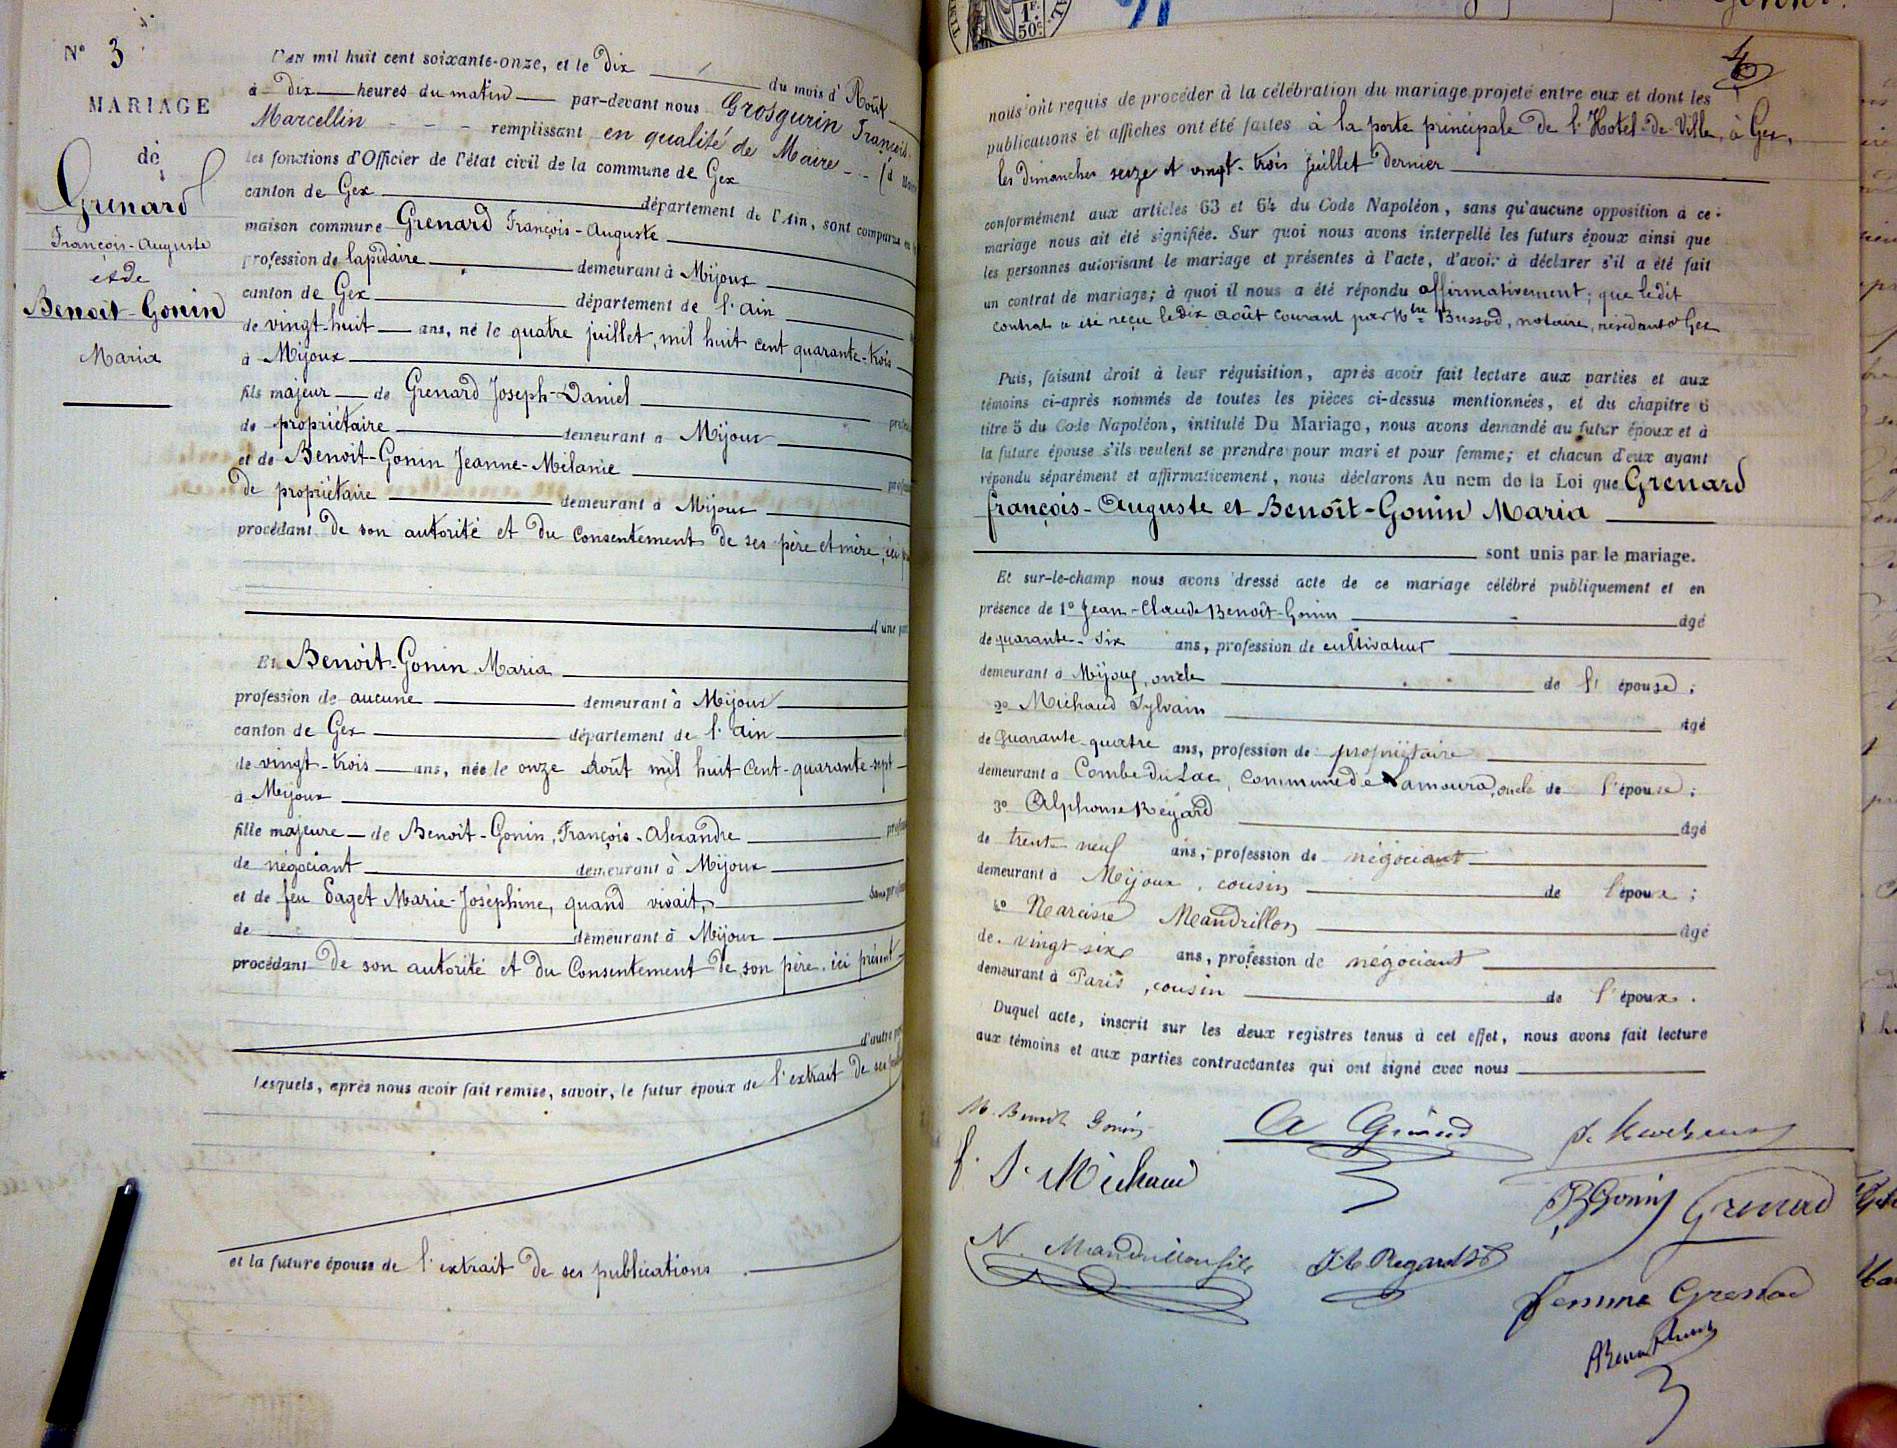 N° 3
MARIAGE
de
Grenard
François-Auguste
et de
Benoit-Gonin
Maria
L'an mil huit cent soixante-onze, et le dix du mois d'Août
à dix heures du matin par-devant nous Grosgurin François
Marcellin remplissant en qualité de Maire
les fonctions d'Officier de l'état civil de la commune de Gex
canton de Gex département de l'Ain, sont comparus en
maison commune Grenard François-Auguste
profession de lapidaire demeurant à Mijoux
canton de Gex département de l'ain
de vingt-huit ans, né le quatre juillet, mil huit cent quarante-trois
à Mijoux
fils majeur de Grenard Joseph-Daniel
de propriétaire demeurant à Mijoux
et de Benoit-Gonin Jeanne-Mélanie
de propriétaire demeurant à Mijoux
procédant de son autorité et du Consentement de ses père et mère, ici
d'une
Et Benoit-Gonin Maria
profession de aucune demeurant à Mijoux
canton de Gex département de l'ain
de vingt-trois ans, née le onze Août mil huit Cent-quarante-sept
à Mijoux
fille majeure de Benoit-Gonin, François-Alexandre
de négociant demeurant à Mijoux
et de feu Paget Marie-Joséphine, quand vivait, sans
de demeurant à Mijoux
procédant de son autorité et du Consentement de son père, ici présent
d'autre
Lesquels, après nous avoir fait remise, savoir, le futur époux de l'extrait de ses
et la future épouse de l'extrait de ses publications
1F.
50c.
nous ont requis de procéder à la célébration du mariage projeté entre eux et dont les
publications et affiches ont été faites à la porte principale de l'Hotel-de-Ville, à Gex,
les dimanches seize et vingt-trois juillet dernier
conformément aux articles 63 et 64 du Code Napoléon, sans qu'aucune opposition à ce
mariage nous ait été signifiée. Sur quoi nous avons interpellé les futurs époux ainsi que
les personnes autorisant le mariage et présentes à l'acte, d'avoir à déclarer s'il a été fait
un contrat de mariage; à quoi il nous a été répondu affirmativement; que ledit
contrat a été reçu le dix août courant par Mtre Bussod, notaire, résidant à Gex
Puis, faisant droit à leur réquisition, après avoir fait lecture aux parties et aux
témoins ci-après nommés de toutes les pièces ci-dessus mentionnées, et du chapitre 6
titre 5 du Code Napoléon, intitulé Du Mariage, nous avons demandé au futur époux et à
la future épouse s'ils veulent se prendre pour mari et pour femme; et chacun d'eux ayant
répondu séparément et affirmativement, nous déclarons Au nom de la Loi que Grenard
françois-Auguste et Benoît-Gonin Maria
sont unis par le mariage.
Et sur-le-champ nous avons dressé acte de ce mariage célébré publiquement et en
présence de 1° Jean-Claude Benoît-Gonin âgé
de quarante-six ans, profession de cultivateur
demeurant à Mijoux, oncle de l'épouse;
2° Michaud Sylvain âgé
de quarante-quatre ans, profession de propriétaire
demeurant à Combe du Lac, Commune de Lamoura, oncle de l'épouse;
3° Alphonse Regard âgé
de trente neuf ans, profession de négociant
demeurant à Mijoux, cousin de l'époux;
4° Narcisse Mandrillon âgé
de vingt six ans, profession de négociant
demeurant à Paris, cousin de l'époux.
Duquel acte, inscrit sur les deux registres tenus à cet effet, nous avons fait lecture
aux témoins et aux parties contractantes qui ont signé avec nous
M. Benoit Gonin
S. Michaud
BGonin Grenard
N. Mandrillon fils
femme Grenard